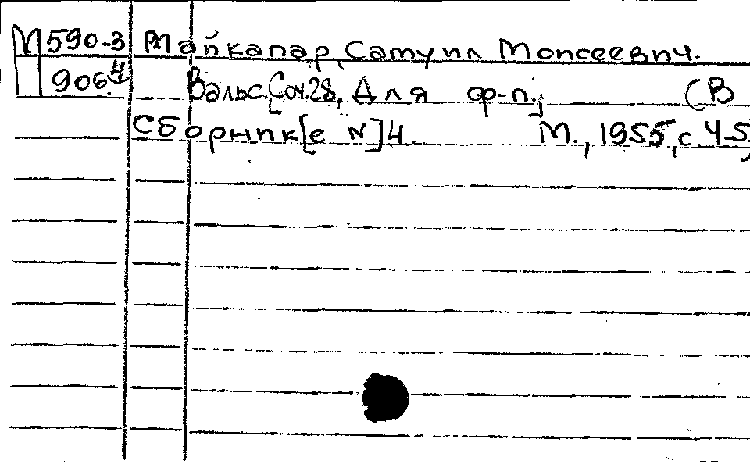 М590-3 Майкапар, Самуил Моисеевич.
906 Вальс. [Соч. 28, Для ф-п.] (В
сборник[е N] 4 М., 1955, с 4-5)